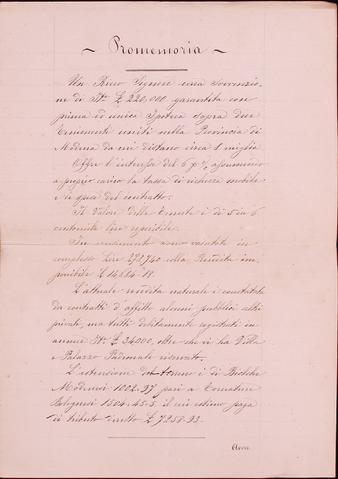 ~ Promemoria ~
Un Ricco Signore cerca Sovvenzio-
ne di It. £ 220,000 garantita con
prima ed unica Ipoteca sopra due
Tenimenti uniti nella Provincia di
Modena da cui distano circa 1 miglia
Offre l'interesse del 6 p % assumendo
a proprio carico la tassa di ricchezza mobile
e le spese del contratto.
Il Valore delle Tenute è di 5 in 6
centomila lire
In censimento sono valutate in
complesso Lire colla Rendita im
ponibile £ 14684.18
L'attuale rendita naturale è constatata
da contratti d'affitto alcuni pubblici altri
privati, ma tutti debitamente registrati in
annue It. £ 34000, oltre che vi ha Villa
e Palazzo Padronale riservato.
L'estensione del terreno è di Biolche
Modenesi 1002.37 pari a Tornature
Bolognesi 1304.45.5, il cui estimo paga
di tributo diretto £ 7258.93.